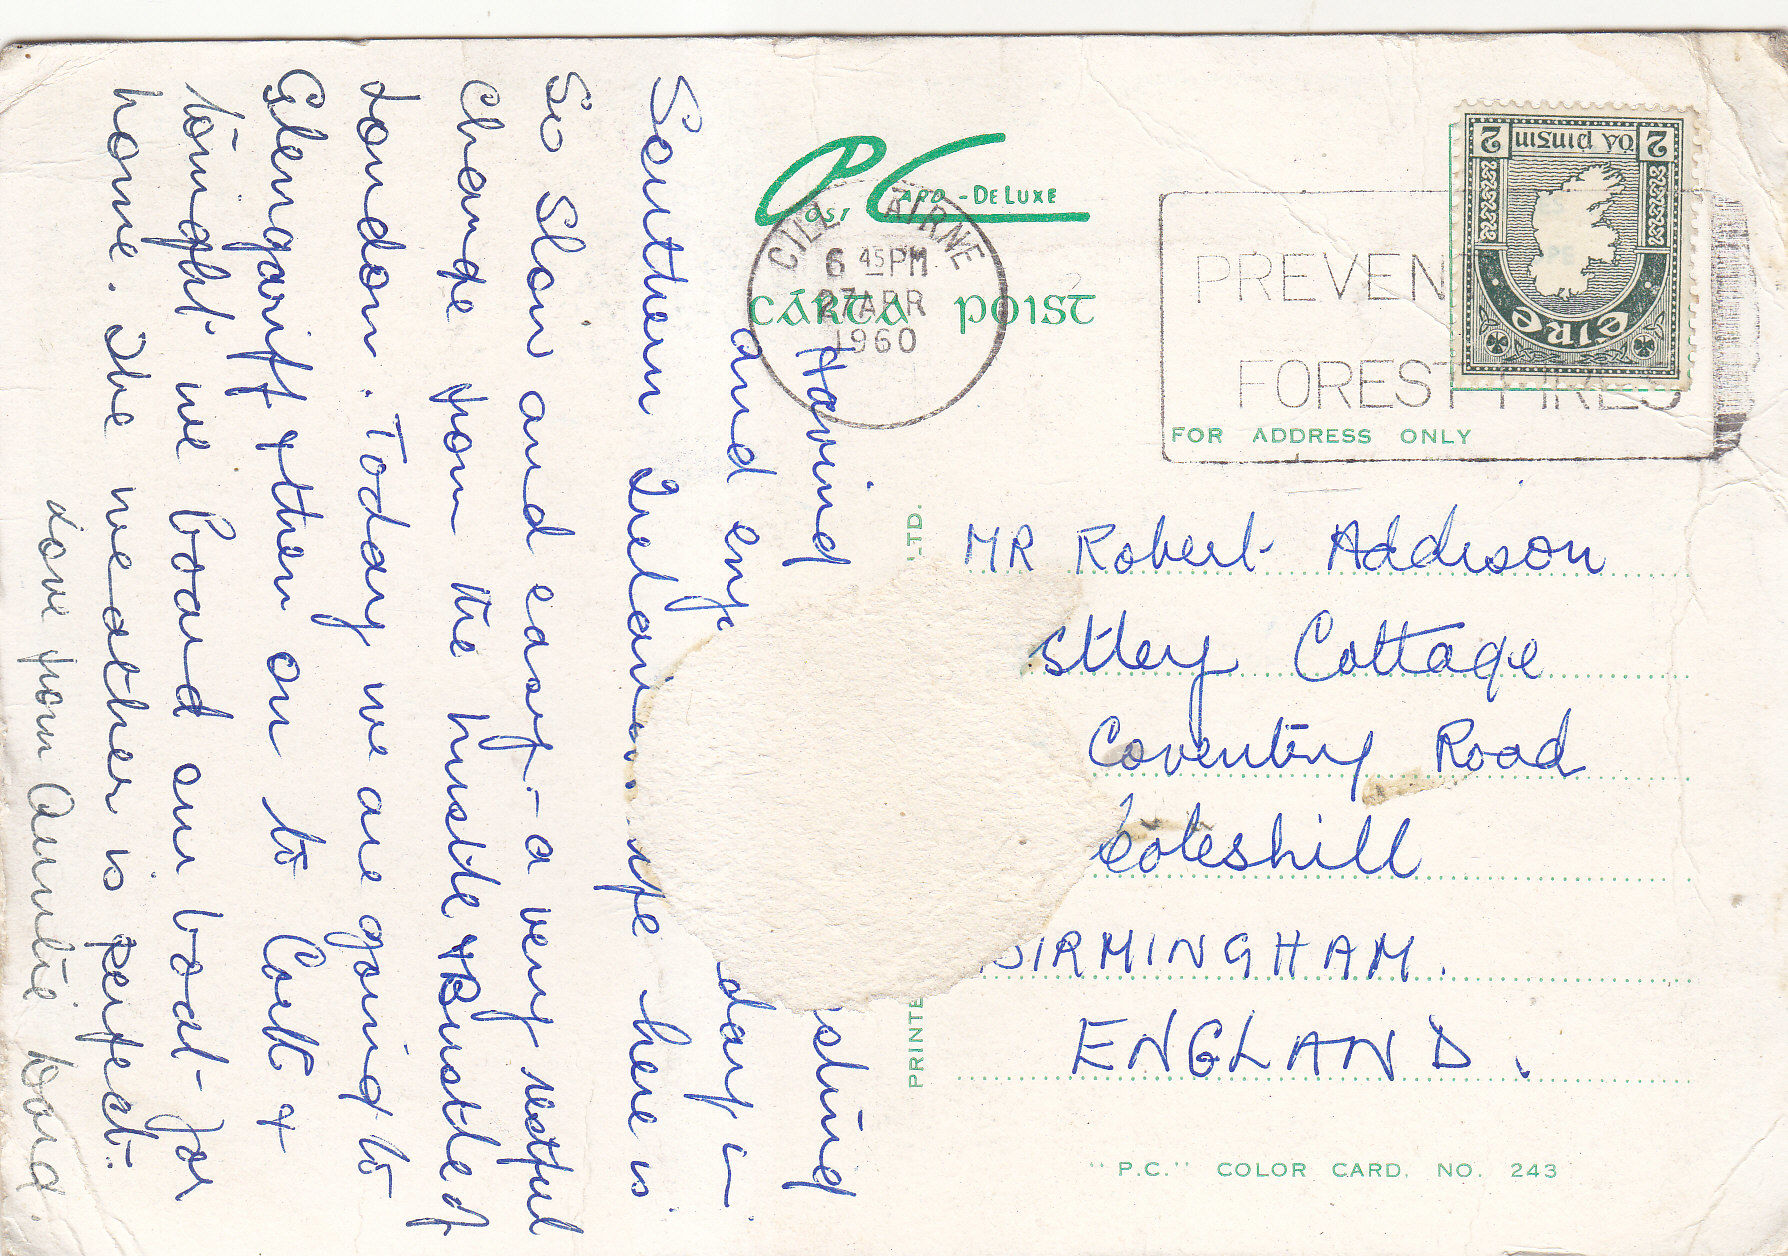 Having sting
and enj day in
Southern Ireland. life here is
so slow and easy - a very restful
change from the hustle & Bustle of
London. Today we are going to
Glengariff & then on to Cork &
tonight we board our boat for
home. The weather is perfect.
Love from Auntie
POST CARD - DE LUXE
CÁRTA POIST
CILL AIRNE
6 45 PM
27 APR
1960
PREVENT
FOREST FIRES
2 DÁ PINGIN 2
ÉIRE
FOR ADDRESS ONLY
MR Robert Addison
Cottage
Coventry Road
Coleshill
BIRMINGHAM.
ENGLAND.
PRINTE LTD.
"P.C." COLOR CARD. NO. 243